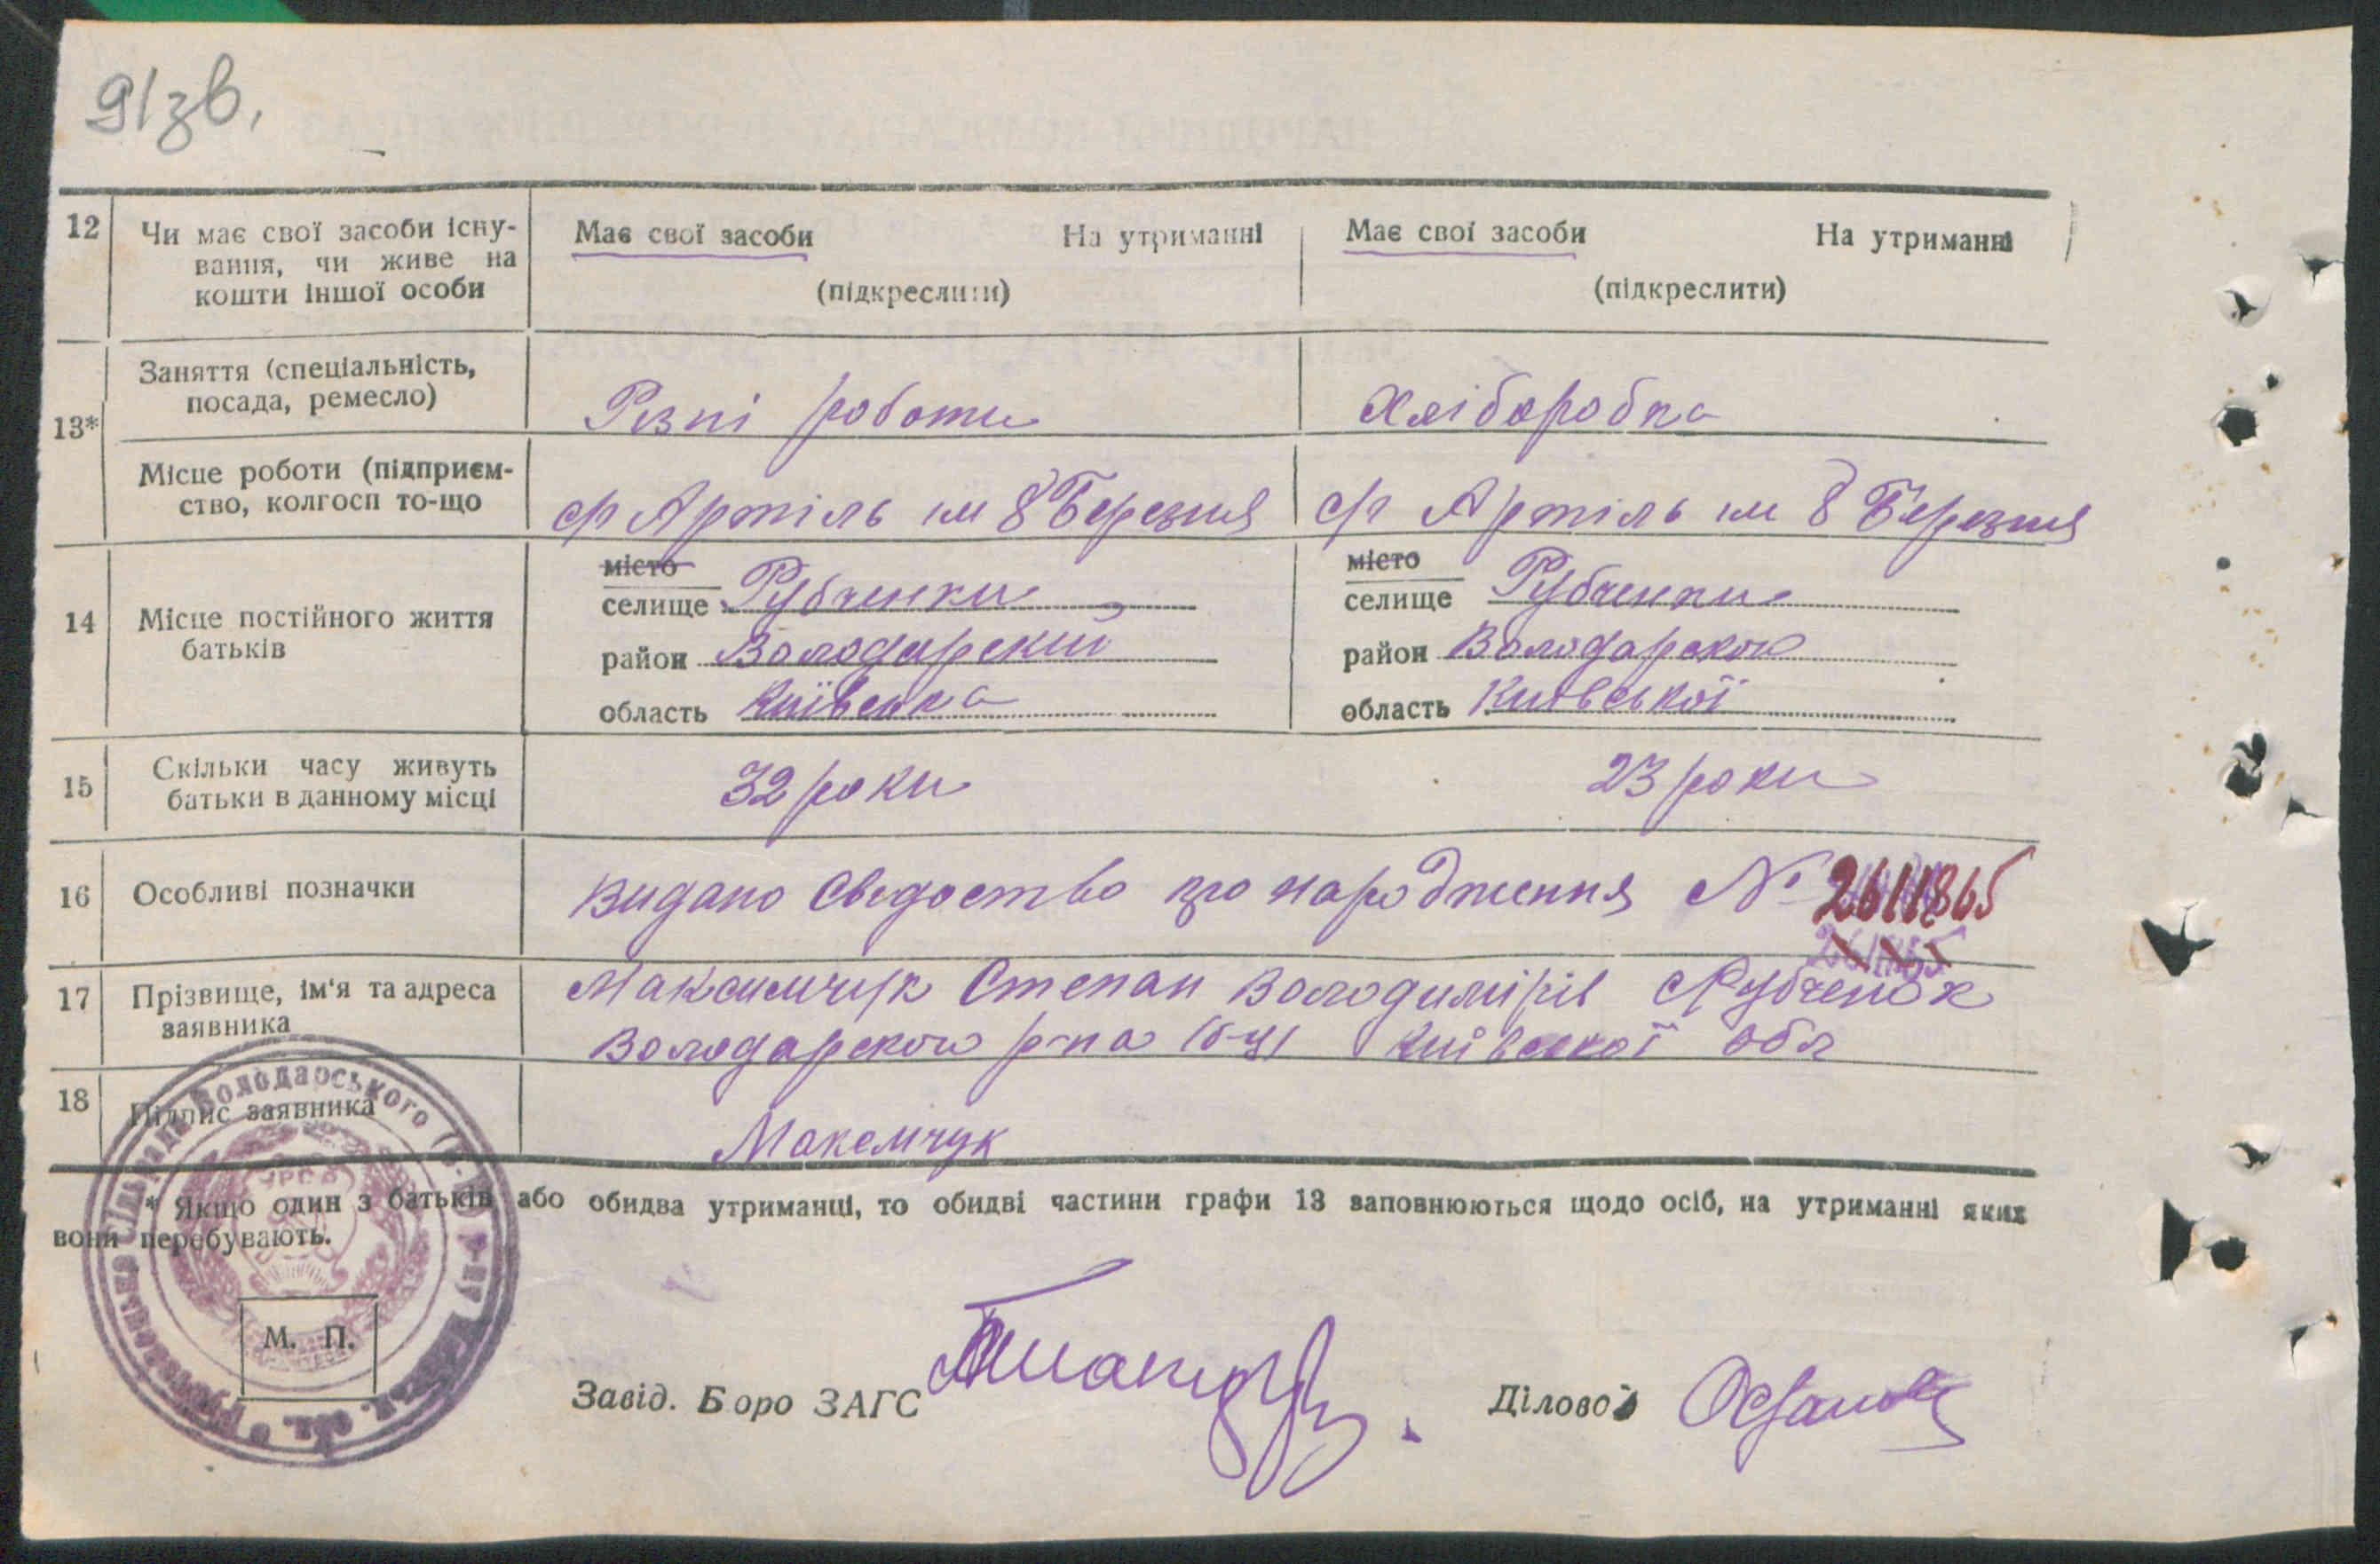 91зв.
12 Чи має свої засоби існу- Має свої засоби На утриманні Має свої засоби На утриманні
вання, чи живе на
кошти іншої особи (підкреслити) (підкреслити)
13* Заняття (спеціальність,
посада, ремесло) Різні роботи Хліборобка
Місце роботи (підприєм-
ство, колгосп то-що с/г Артіль ім 8 Березня с/г Артіль ім 8 Березня
14 Місце постійного життя
батьків
місто місто
селище Рубченки селище Рубченки
район Володарский район Володарского
область Київська область Київської
15 Скільки часу живуть
батьки в данному місці 32 роки 23 роки
16 Особливі позначки Видано Свідоство про народження № 2611865
17 Прізвище, ім'я та адреса Максимчук Степан Володимірів с Рубченок
заявника Володарского р-на (б-ц) Київської обл
18 Підпис заявника
Максмчук
* Якщо один з батьків або обидва утриманці, то обидві частини графи 13 заповнюються щодо осіб, на утриманні яких
вони перебувають.
М. П.
Завід. Бюро ЗАГС Діловод